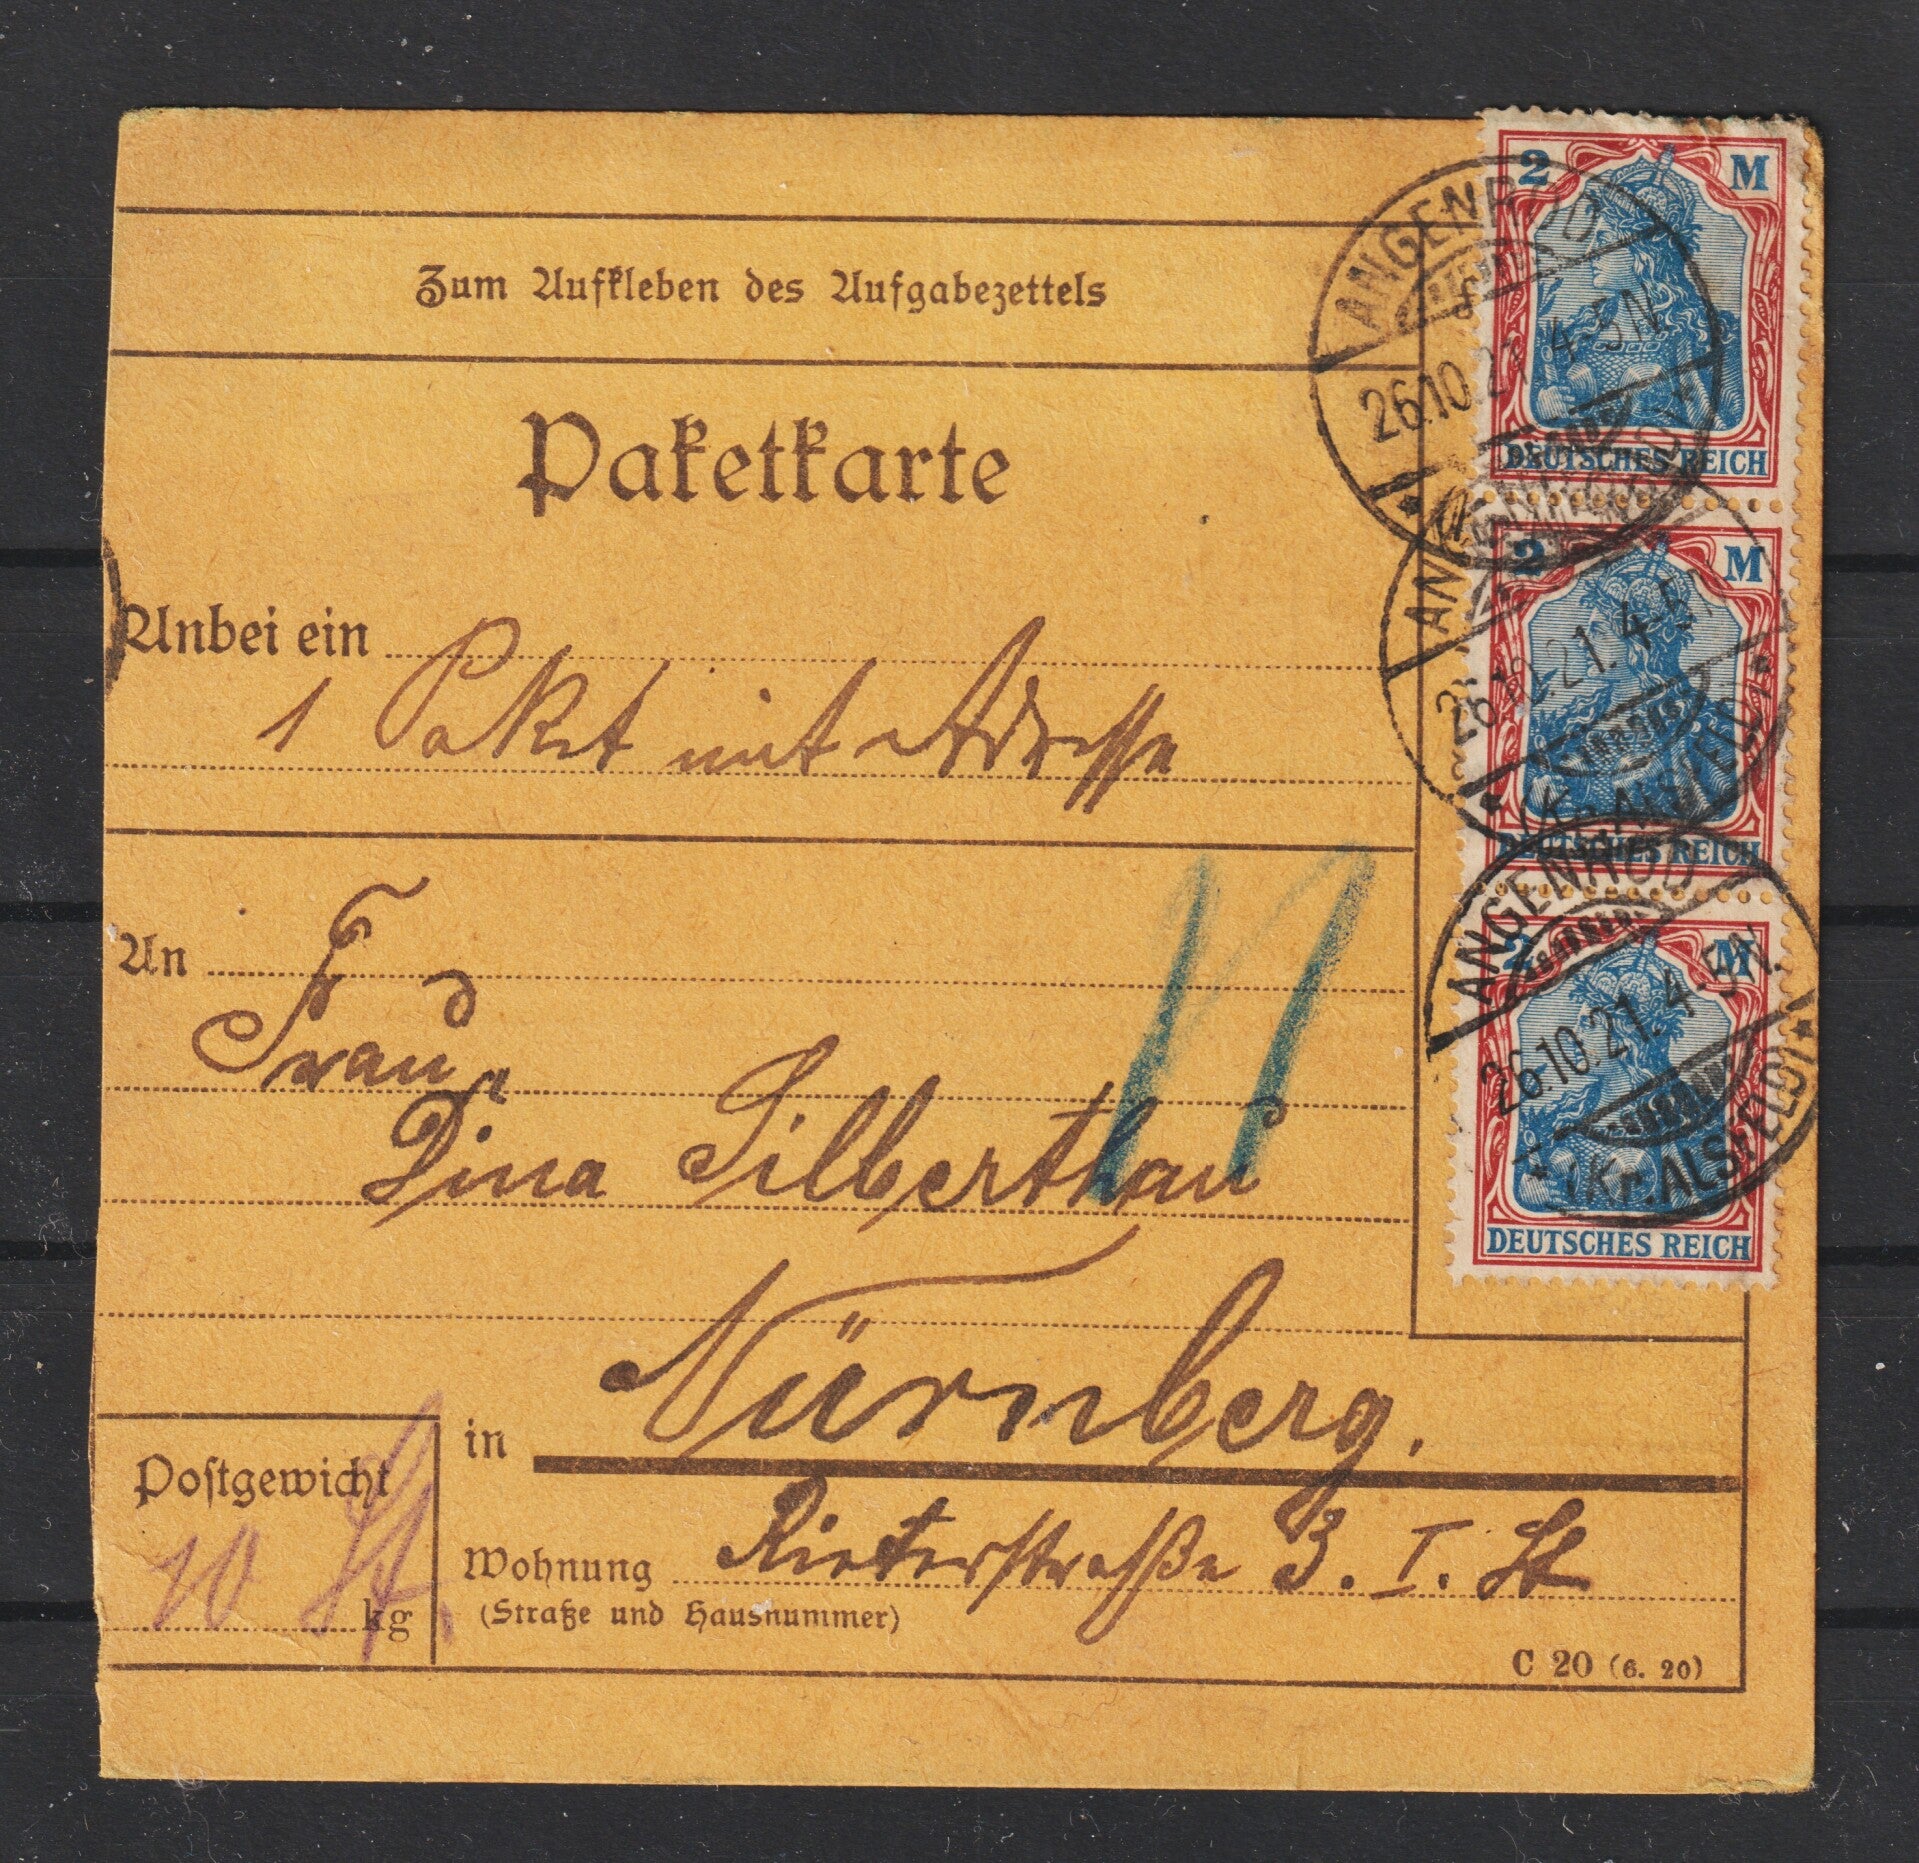 Zum Aufkleben des Aufgabezettels
Paketkarte
Anbei ein
1 Paket mit Adresse
An
Frau
Dina Silberthau
in Nürnberg.
Postgewicht
10 kg
Wohnung
(Straße und Hausnummer)
Rieterstraße 3. I. St
C 20 (6. 20)
2 M
DEUTSCHES REICH
2 M
DEUTSCHES REICH
2 M
DEUTSCHES REICH
ANGENROD
26.10.21. 4-5N
ANGENROD
26.10.21. 4-5N
(Kr. ALSFELD)
ANGENROD
26.10.21. 4-5N.
(Kr. ALSFELD)